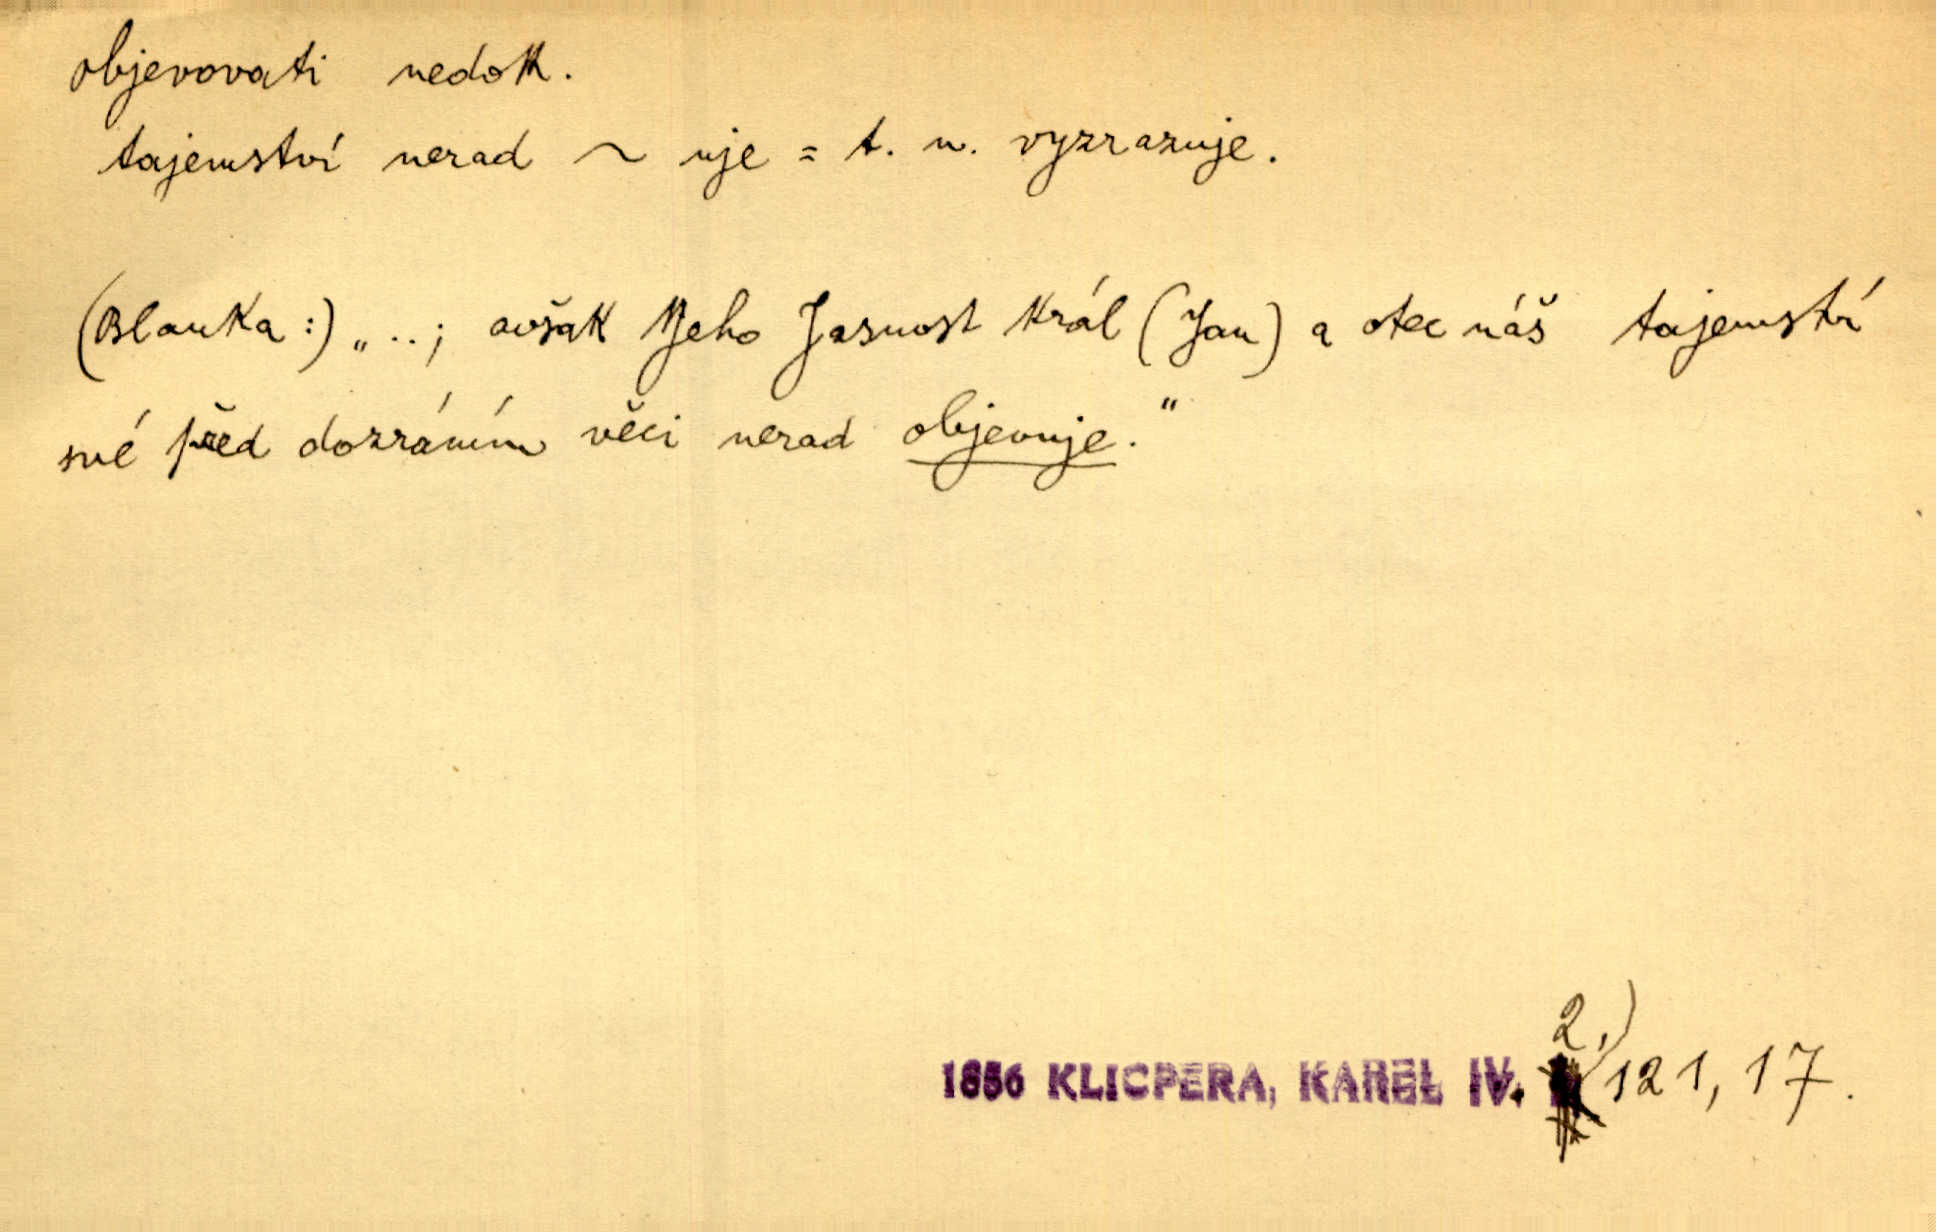 objevovati nedok.
tajemství nerad ~ uje = t. n. vyzrazuje.
(Blanka:) „..; avšak Jeho Jasnost král (Jan) a otec náš tajemství
své před dozráním věci nerad objevuje.“
2.)
1856 KLICPERA, KAREL IV. 121, 17.